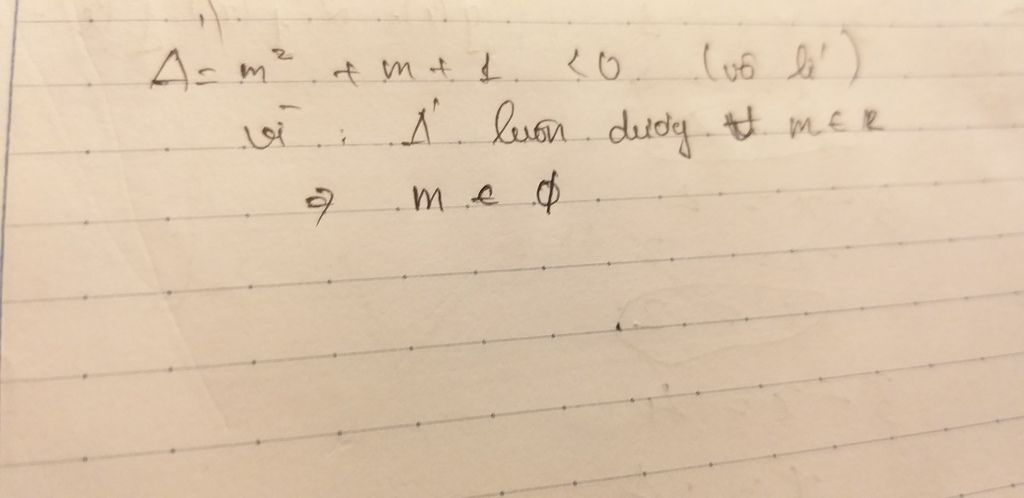 Δ = m² + m + 1 < 0 (vô lí)
vì : Δ' luôn dương ∀ m ∈ R
⇒ m ∈ ϕ